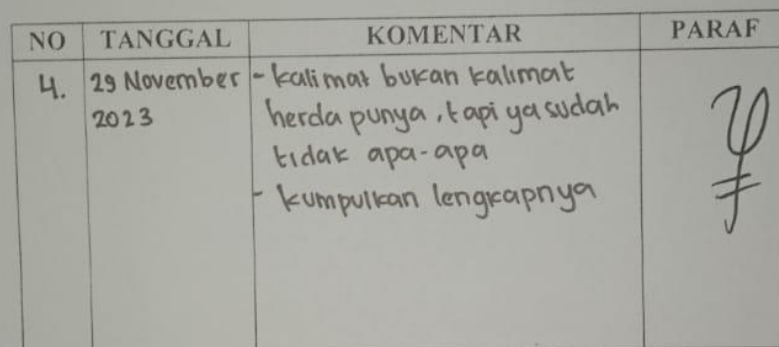 NO TANGGAL KOMENTAR PARAF
4. 29 November - kalimat bukan kalimat
2023 herda punya, tapi ya sudah
tidak apa-apa
- kumpulkan lengkapnya